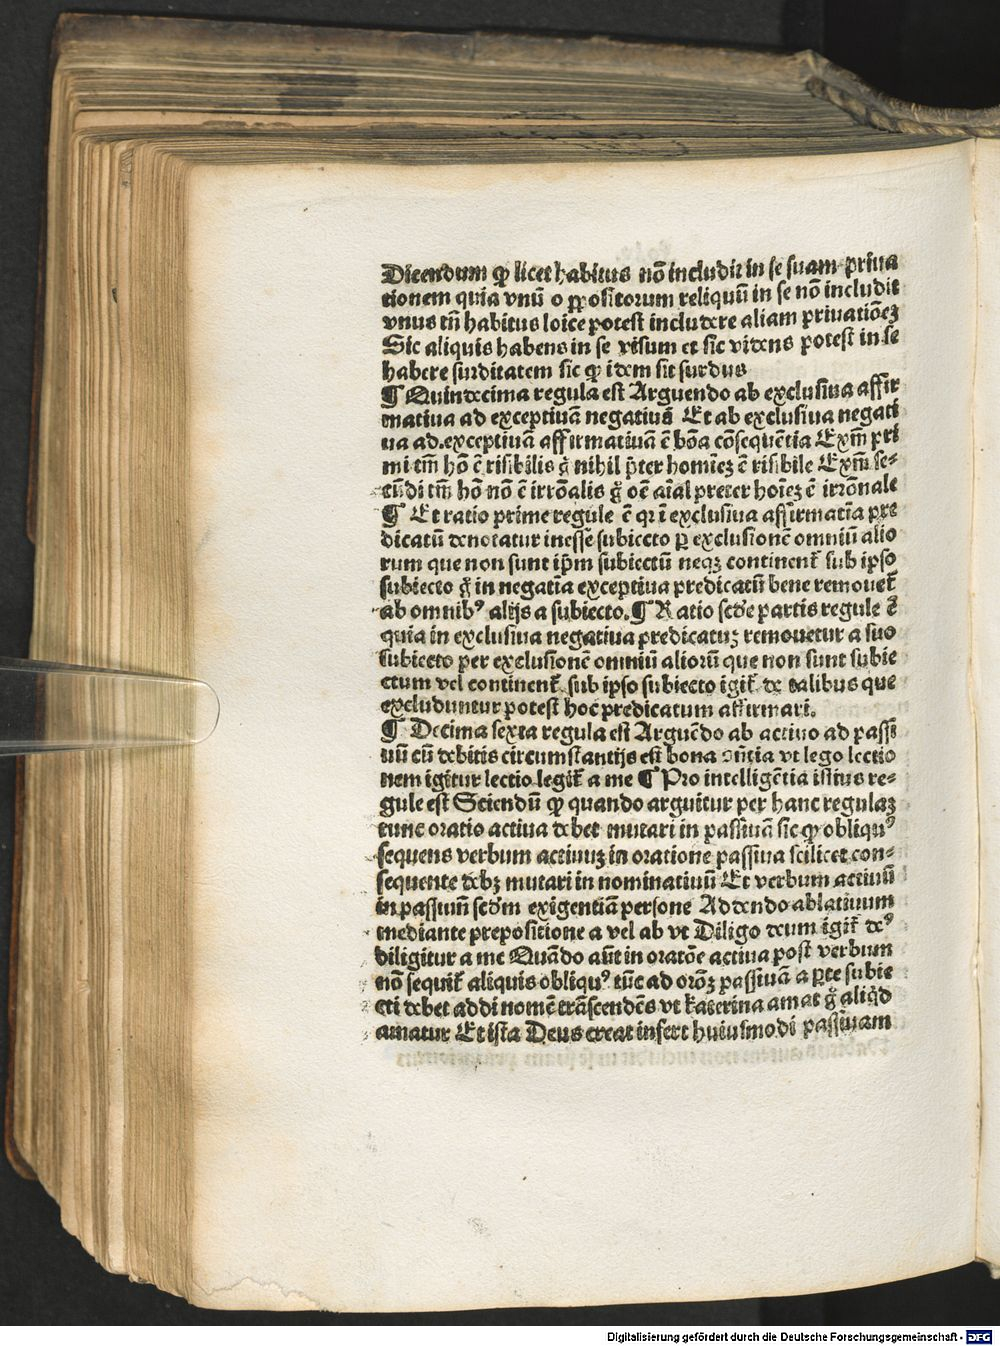 Dicendum ꝙ licet habitus nō includit in se suam priua
tionem quia vnū o ꝓpositorum reliquū in se nō includit
vnus tñ habitus loice potest includere aliam priuatiōeꝫ
Sic aliquis habens in se visum et sic videns potest in se
habere surditatem sic ꝙ idem sit surdus
¶ Quindecima regula est Arguendo ab exclusiua affir
matiua ad exceptiuā negatiuā Et ab exclusiua negati
ua ad exceptiuā affirmatiuā ē bōa cōsequētia Exm̄ pri
mi tm̄ hō ē risibilis g̊ nihil p̄ter homīeꝫ ē risibile Exm̄ se⸗
cūdi tm̄ hō nō ē irrōalis g̊ oē aīal preter hoīeꝫ ē irrōnale
¶ Et ratio prime regule ē qꝛ ī exclusiua affirmatīa pre
dicatū denotatur inesse subiecto ꝑ exclusionē omniū alio
rum que non sunt ip̄m subiectū neqꝫ continent᷑ sub ipso
subiecto g̊ in negatīa exceptiua predicatū bene remouet᷑
ab omnibꝰ alijs a subiecto. ¶ Ratio scd̄e partis regule ē
quia in exclusiua negatiua predicatuꝫ remouetur a suo
subiecto per exclusionē omniū alioꝛū que non sunt subie
ctum vel continent᷑ sub ipso subiecto igit᷑ de talibus que
excluduntur potest hoc predicatum affirmari.
¶ Decima sexta regula est Arguēdo ab actiuo ad passi
uū cū debitis circumstantijs est bona ꝯn̄tia vt lego lectio
nem igitur lectio legit᷑ a me ¶ Pro intelligētia istius re⸗
gule est Sciendū ꝙ quando arguitur per hanc regulaꝫ
tunc oratio actiua debet mutari in passiuā sic ꝙ obliquꝰ
sequens verbum actiuuꝫ in oratione passiua scilicet con⸗
sequente debꝫ mutari in nominatiuū Et verbum actiuū
in passiuū scd̄m exigentiam persone Addendo ablatiuum
mediante prepositione a vel ab vt Diligo deum igit᷑ deꝰ
diligitur a me Quādo aūt in oratōe actiua post verbum
nō sequit᷑ aliquis obliquꝰ tūc ad orōꝫ passiuā a ꝑte subie
cti debet addi nomē trāscendēs vt katerina amat g̊ aliqd̄
amatur Et ista Deus creat infert huiusmodi passiuam
Digitalisierung gefördert durch die Deutsche Forschungsgemeinschaft - DFG